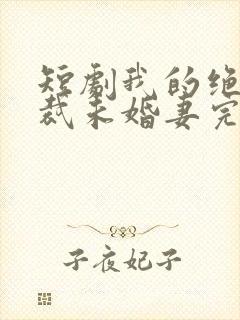 短剧我的绝
裁未婚妻完
子夜妃子